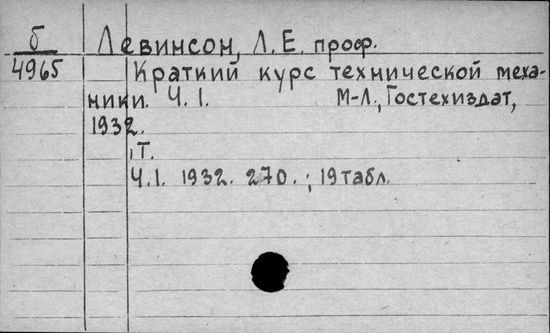 б Левинсон, Л.Е. проф.
4965 Краткий курс технической меха-
ники. Ч.1. М-Л., Гостехиздат,
1932.
Т.
Ч.1. 1932. 270. ; 19 табл.